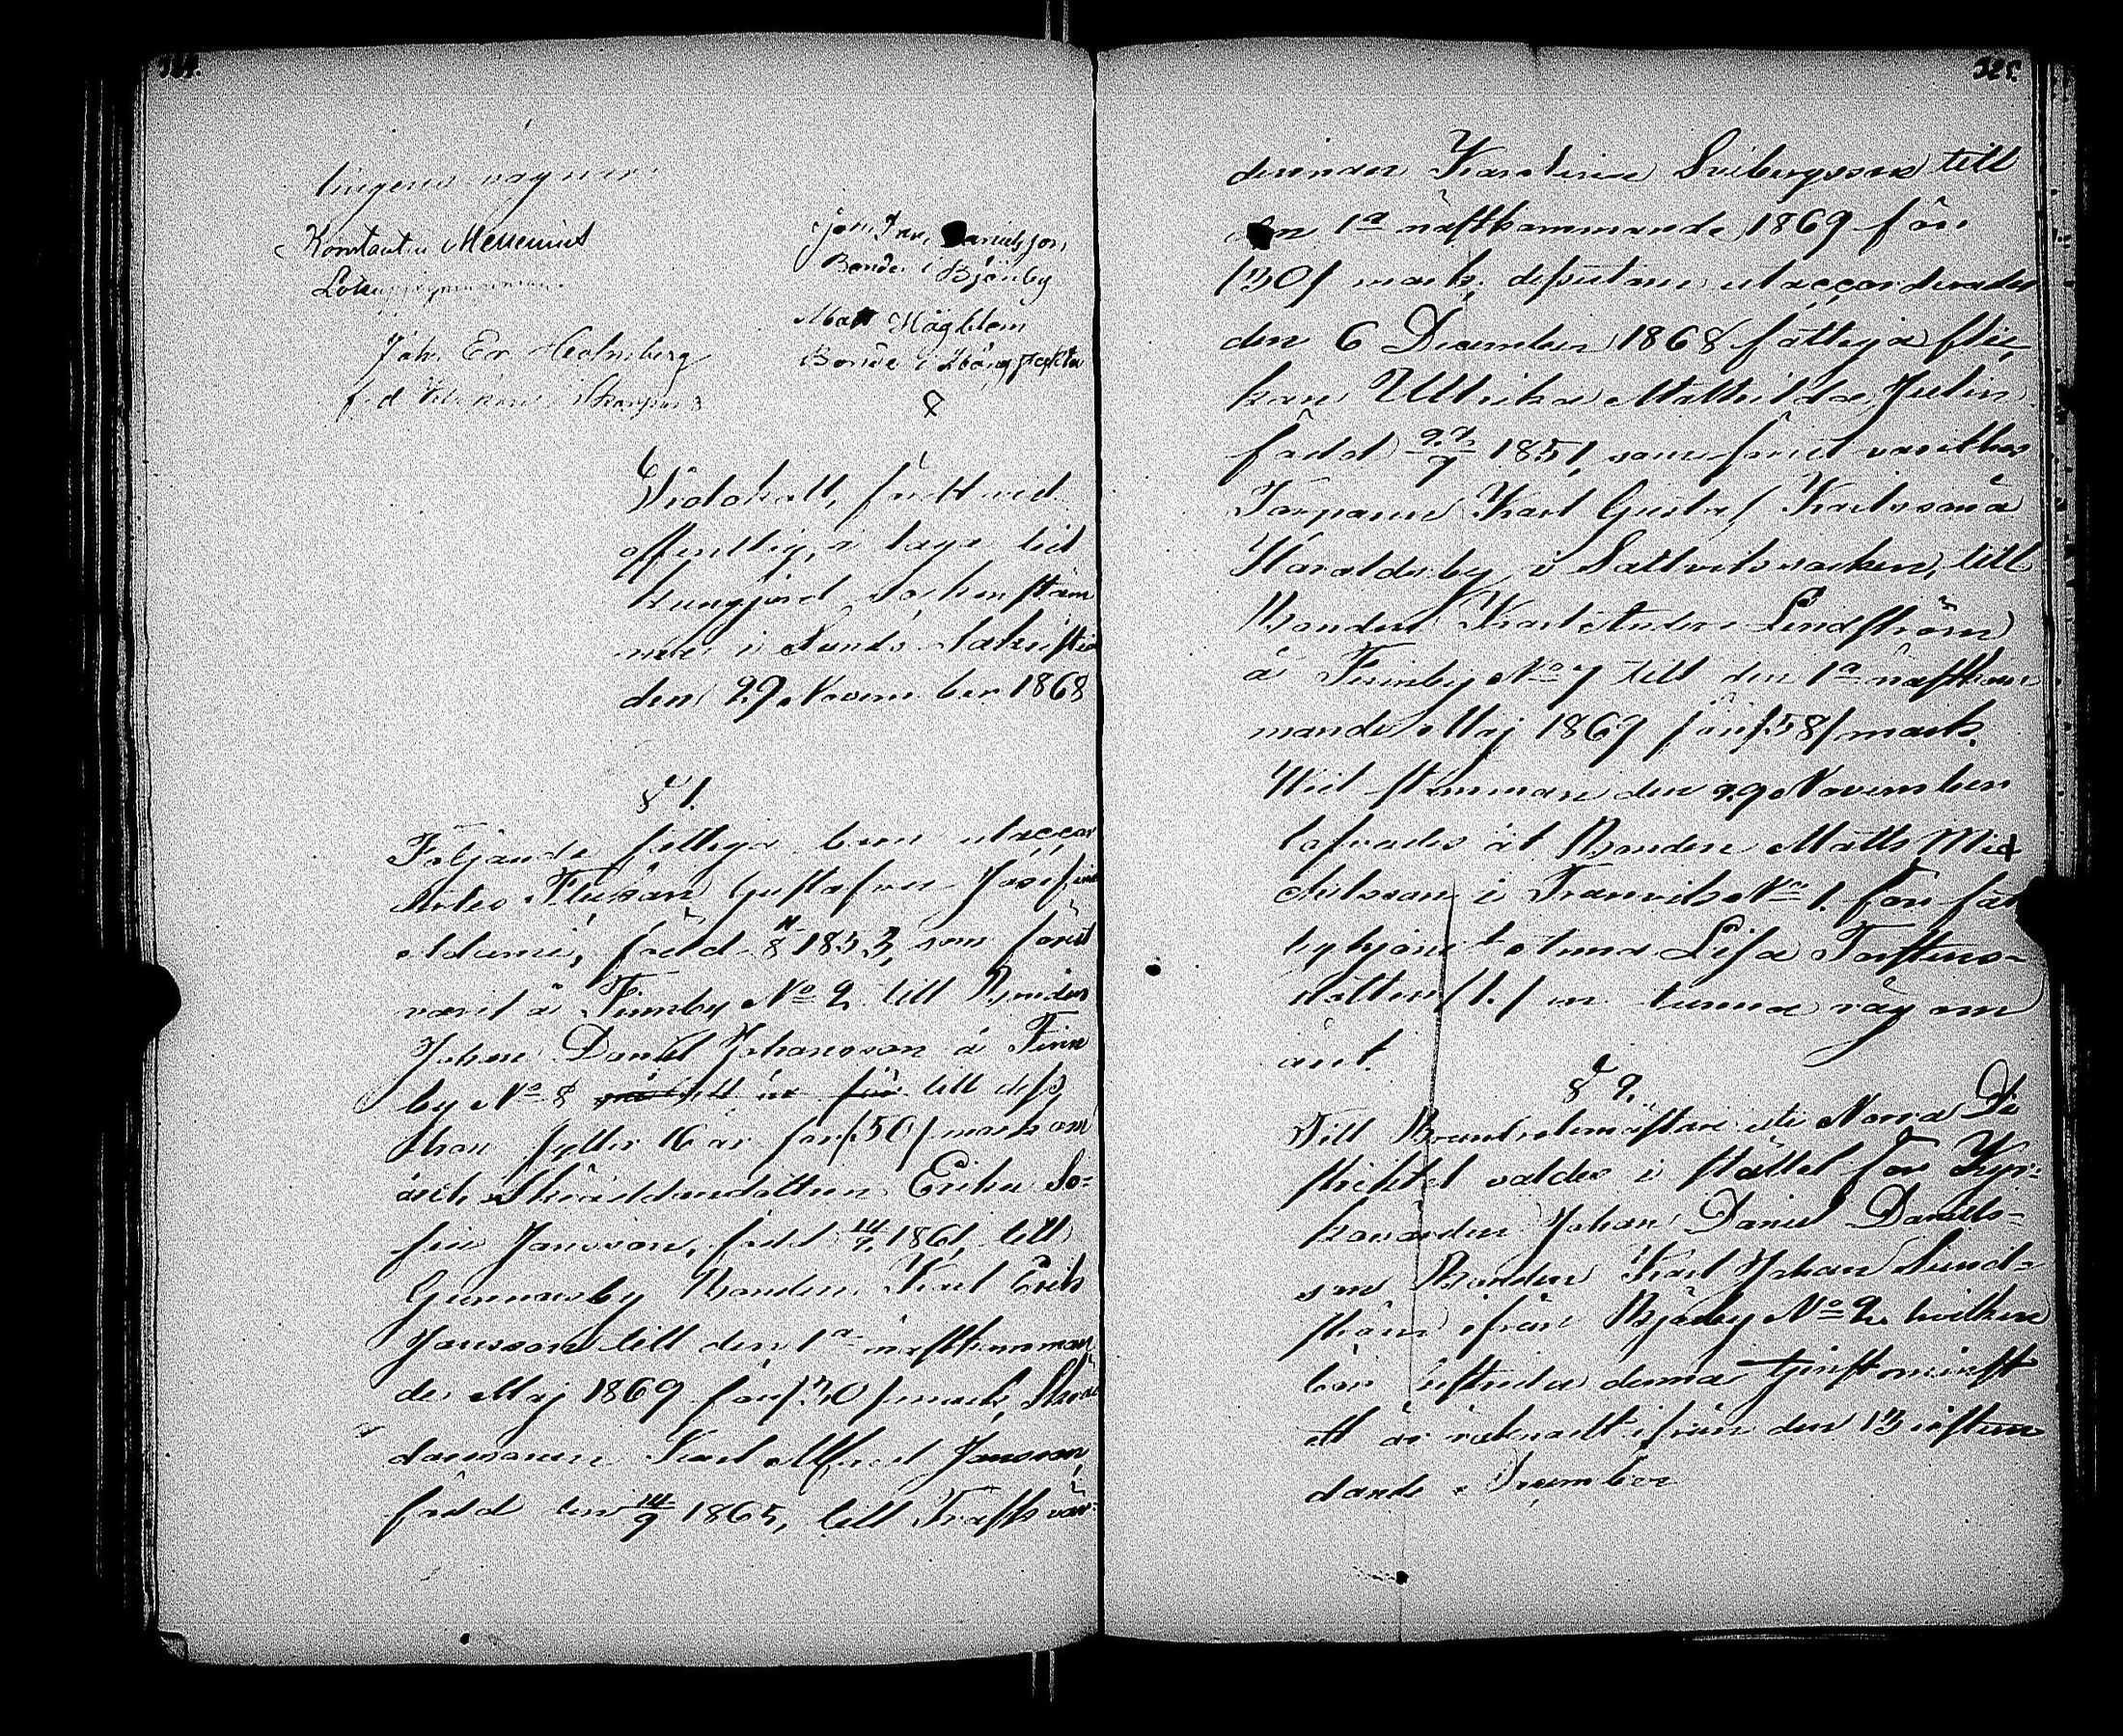 324.
tingens vägnar:
Konstantin Mesterius
Joh. Er. Holmberg
Joh. Dan. Danielsson
Bonde i Bjerby
Matt Hägblom
Bonde i
Protokoll, fördt wid
offentlig, i laga tid
kungjord Sockenstäm
ma i Sunds Sakristia
den 29 November 1868
§ 1.
Följande fattiga barn utaccor
derades Flickan Gustafva Josefina
född 8 1853, som förut
varit å Finnby No 2 till Bonden
Johan Daniel Johansson å Finn
by No 8 till dess
hon fyller 16 år för /50/ mark om
året Skräddaredottren Erika So-
fia Jansson, född 1861, till
Gunnarsby Bonden Karl Erik
Jansson till den 1a nästkomman
de Maj 1869 för /30/ mark, Skräd
daresonen Karl Alfred Jansson,
född den 14/9 1865, till
325.
Karolina Sveibergsson till
den 1a nästkommande 1869 för
/30/ mark; dessutom utaccorderades
den 6 December 1868 fattiga flic-
kan Ullrika Mathilda Julin
född 27/7 1851, som förut varit hos
Torparen Karl Gustaf Karlsson å
Haraldsby i Saltviks socken, till
Bonden Karl Anders Lindström
å Finnby No 7 till den 1a nästkom
mande Maj 1869 för /58/ mark.
Wid stämman den 29 November
lofvades åt Bonden Matts Mic
kelsson i Tranvik No 1. för fat
tighjonet Anna Lisa Torstens-
dotter /1./ en tunna råg om
året.
§ 2.
Till Brandrotemästare uti Norra Di
striktet valdes i stället för Kyr-
kovärden Johan Daniel Daniels-
son Bonden Karl Johan Lund-
ström ifrån Bjerby No 2, hvilken
bör tillträda denna tjenst minst
ett år räknadt ifrån den 13 istun
dande December